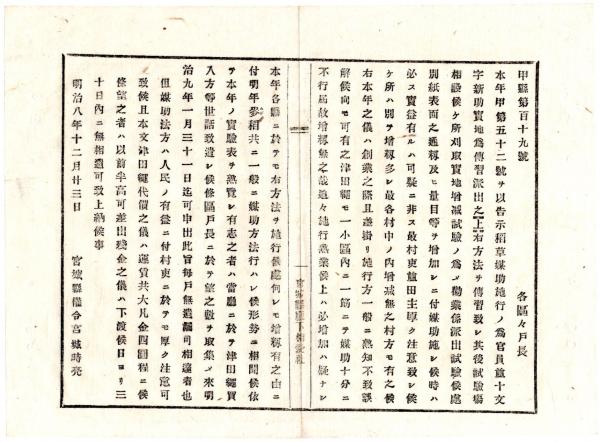 甲縣第百十九號
各區々戸長
本年甲第五十二號ヲ以告示稻草媒助施行ノ爲官員並十文
字新助實地爲傳習派出之上右方法ヲ傳習致シ其後試驗塲
相設候ケ所刈取實地増减試驗ノ爲メ勸業係派出試驗候處
別紙表面之通穗及ヒ量目等ヲ増加シニ付媒助施シ候時ハ
必ス實益有ルハ可疑ニ非ス最村吏並田主厚ク注意致シ候
ケ所ハ別ヲ増穗多シ最各村中ノ内増减無之村方モ有之候
右本年之儀ハ創業之際且差掛リ施行方一般ニ熟知不致誤
解候向モ可有之津田繩モ一小區内ニ一筋ニテ媒助十分ニ
不行屆故増穗無之哉追々施行熟業候上ハ必増加ハ疑ナシ
本年各縣ニ於テモ右方法ヲ施行候處何レモ増穗有之由ニ
付明年麥稻共ニ一般ニ媒助方法行ハレ候形勢ニ相聞候依
テ本年ノ實驗表ヲ熟覽シ有志之者ハ當廳ニ於テ津田繩買
入方等世話致遣シ候條區戸長ニ於テ望之數ヲ取集メ來明
治九年一月三十一日迄可申出此旨毎戸無遺漏可相達者也
但媒助法方ハ人民ノ有益ニ付村吏ニ於テモ厚ク注意可
致候且本文津田繩代價之儀ハ運賃共大凡金四圓程ニ候
條望之者ハ以前半高可差出殘金之儀ハ下渡候日ヨリ三
十日内ニ無相違可致上納候事
明治八年十二月廿三日
宮城縣權令宮城時亮